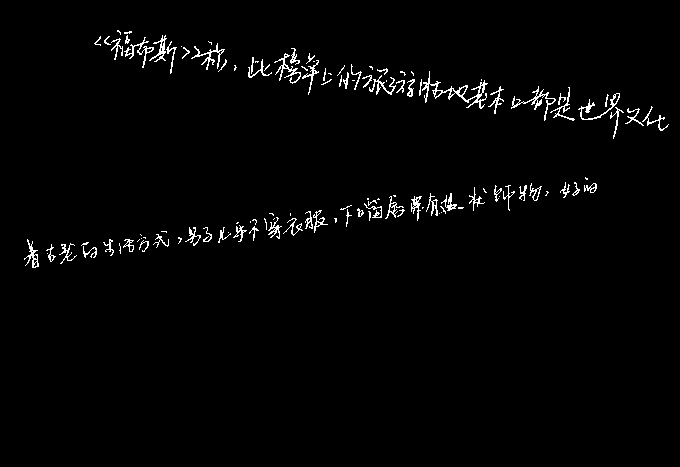 《福布斯》称，此榜单上的旅游胜地基本上都是世界文化
着古老的生活方式，男子几乎不穿衣服，下嘴唇带有盘状饰物，女子的